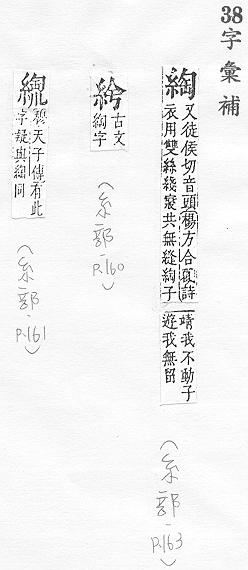 38 字彙補
綯
又徒侯切音頭楊方合歡詩
衣用雙絲綫寢共無縫綯子
靖我不動子
遊我無留
(糸部. P.163)
古文
綯字
(糸部. P.160)
穆天子傳有此
字疑與綯同
(糸部. P.161)